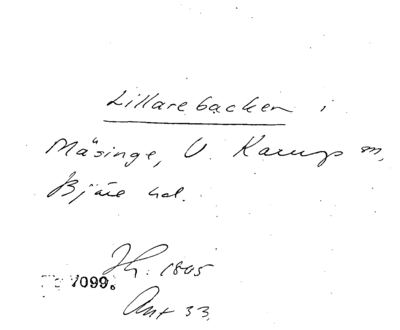 Lillarebacken i
Mäsinge, V. Karup sn,
Bjäre hd.
Jh. 1805
7099.
Ant 33.